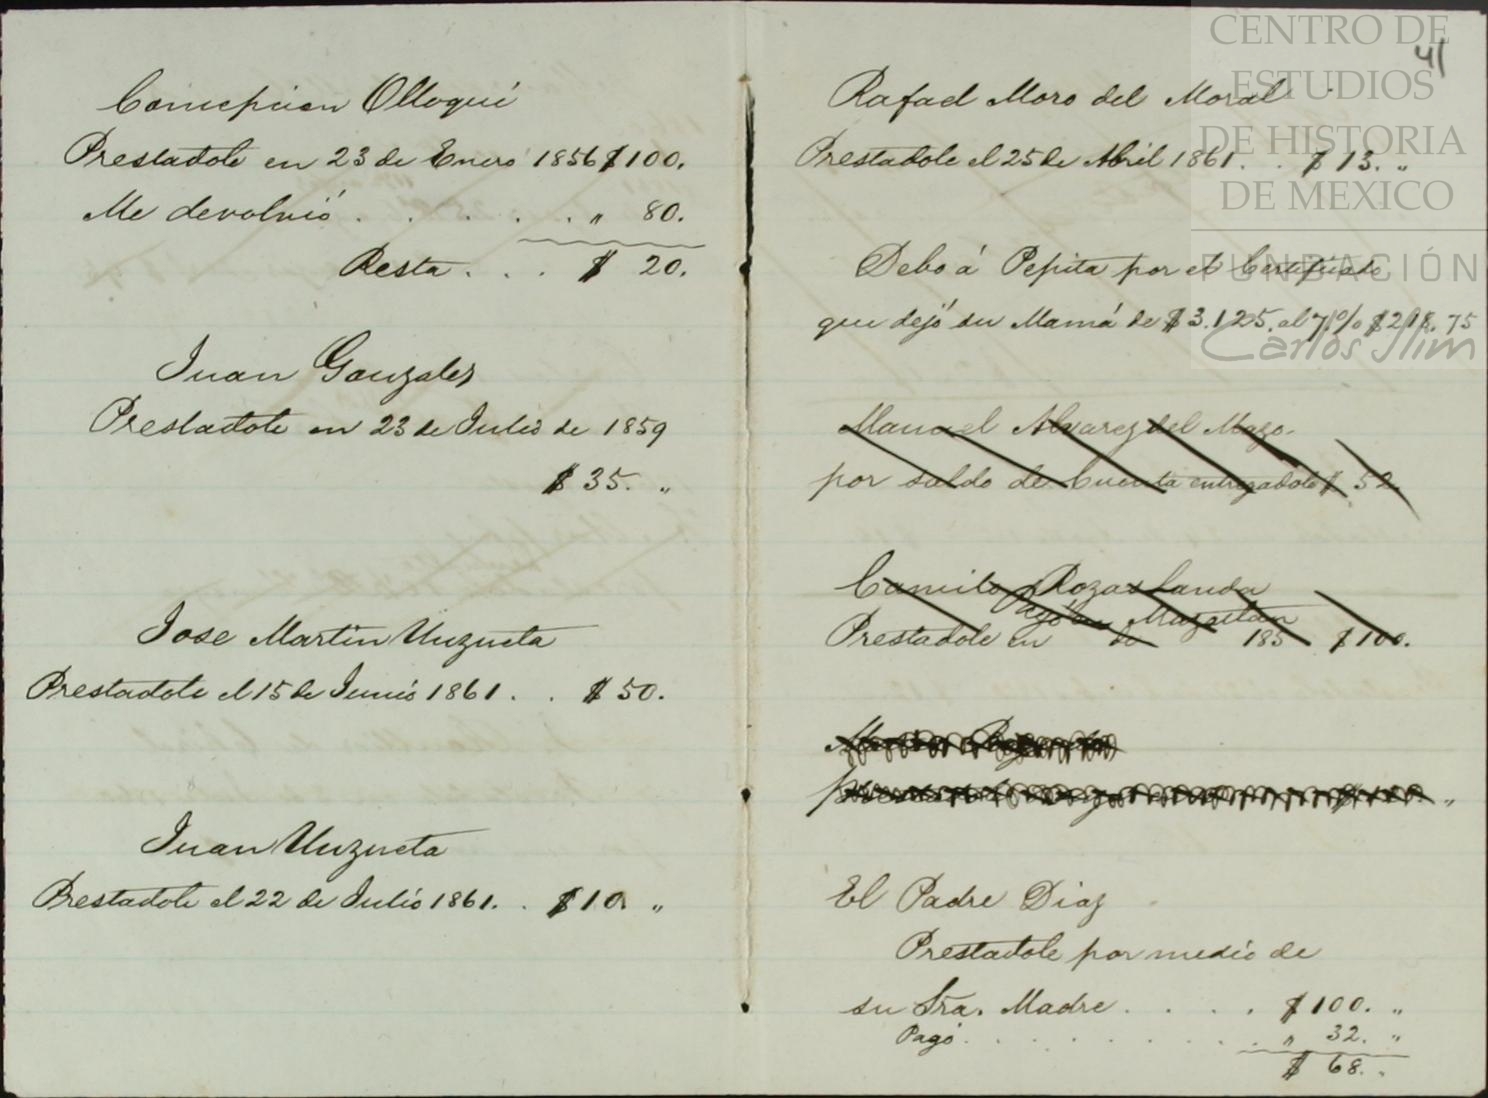 Concepcion Olloqui
Prestadole en 23 de Enero 1856 $100.
Me devolvió . . . . . " 80.
Resta . . . $ 20.
Juan Gonzales
Prestadole en 23 de Julio de 1859
$ 35. "
Jose Martin Unzueta
Prestadole el 15 de Junio 1861 . . $ 50.
Juan Unzueta
Prestadole el 22 de Julio 1861. . $ 10. "
41
Rafael Moro del Moral
Prestadole el 25 de Abril 1861 . . $ 13. "
Debo á Pepita por el Certificado
que dejó su Mamá de $3.125. al 7 % $218.75
Manuel Alvarez del Mazo.
por saldo de Cuenta entregadole $ 52.
Camilo Rozas Landa
Pagó en Mazatlan
Prestadole en de 185 $100.
El Padre Diaz
Prestadole por medio de
su Sra. Madre . . . . $ 100. "
Pagó . . . . . . . . " 32. "
$ 68. "
CENTRO DE
ESTUDIOS
DE HISTORIA
DE MEXICO
FUNDACIÓN
Carlos Slim